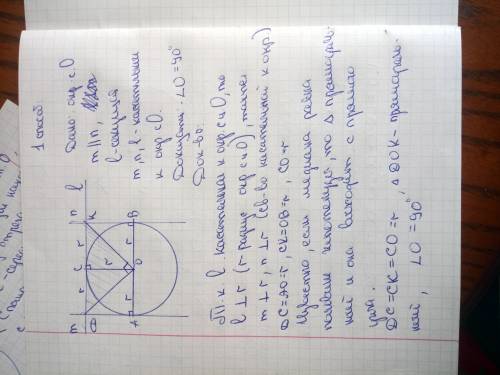 1 способ
Дано: окр. с O
m || n,
l - секущая
m, n, l - касательные
к окр. с O.
Доказать: ∠O = 90°
Док-во:
m
n
l
D
C
K
A
O
B
r
r
r
r
r
Т. к l касательная к окр с ц O, то
l ⊥ r (r - радиус окр с ц O), также
m ⊥ r, n ⊥ r (св-во касательной к окр)
DC = AO = r, CK = OB = r, CO = r
Известно, если медиана равна
половине гипотенузы, то Δ прямоуголь-
ный и она выходит с прямого
угла.
DC = CK = CO = r, Δ DOK - прямоуголь-
ный, ∠O = 90°